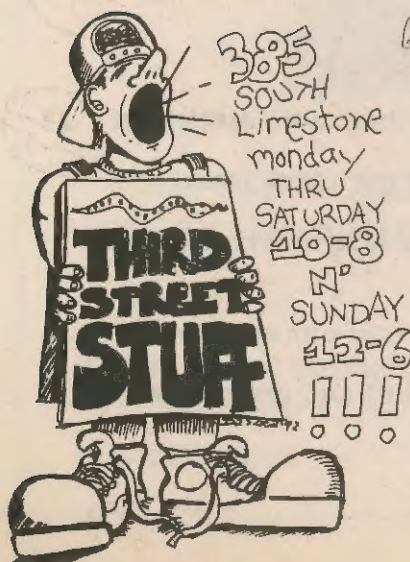 385
SOUTH
Limestone
monday
THRU
SATURDAY
10-8
N'
SUNDAY
12-6
!!!
THIRD
STREET
STUFF